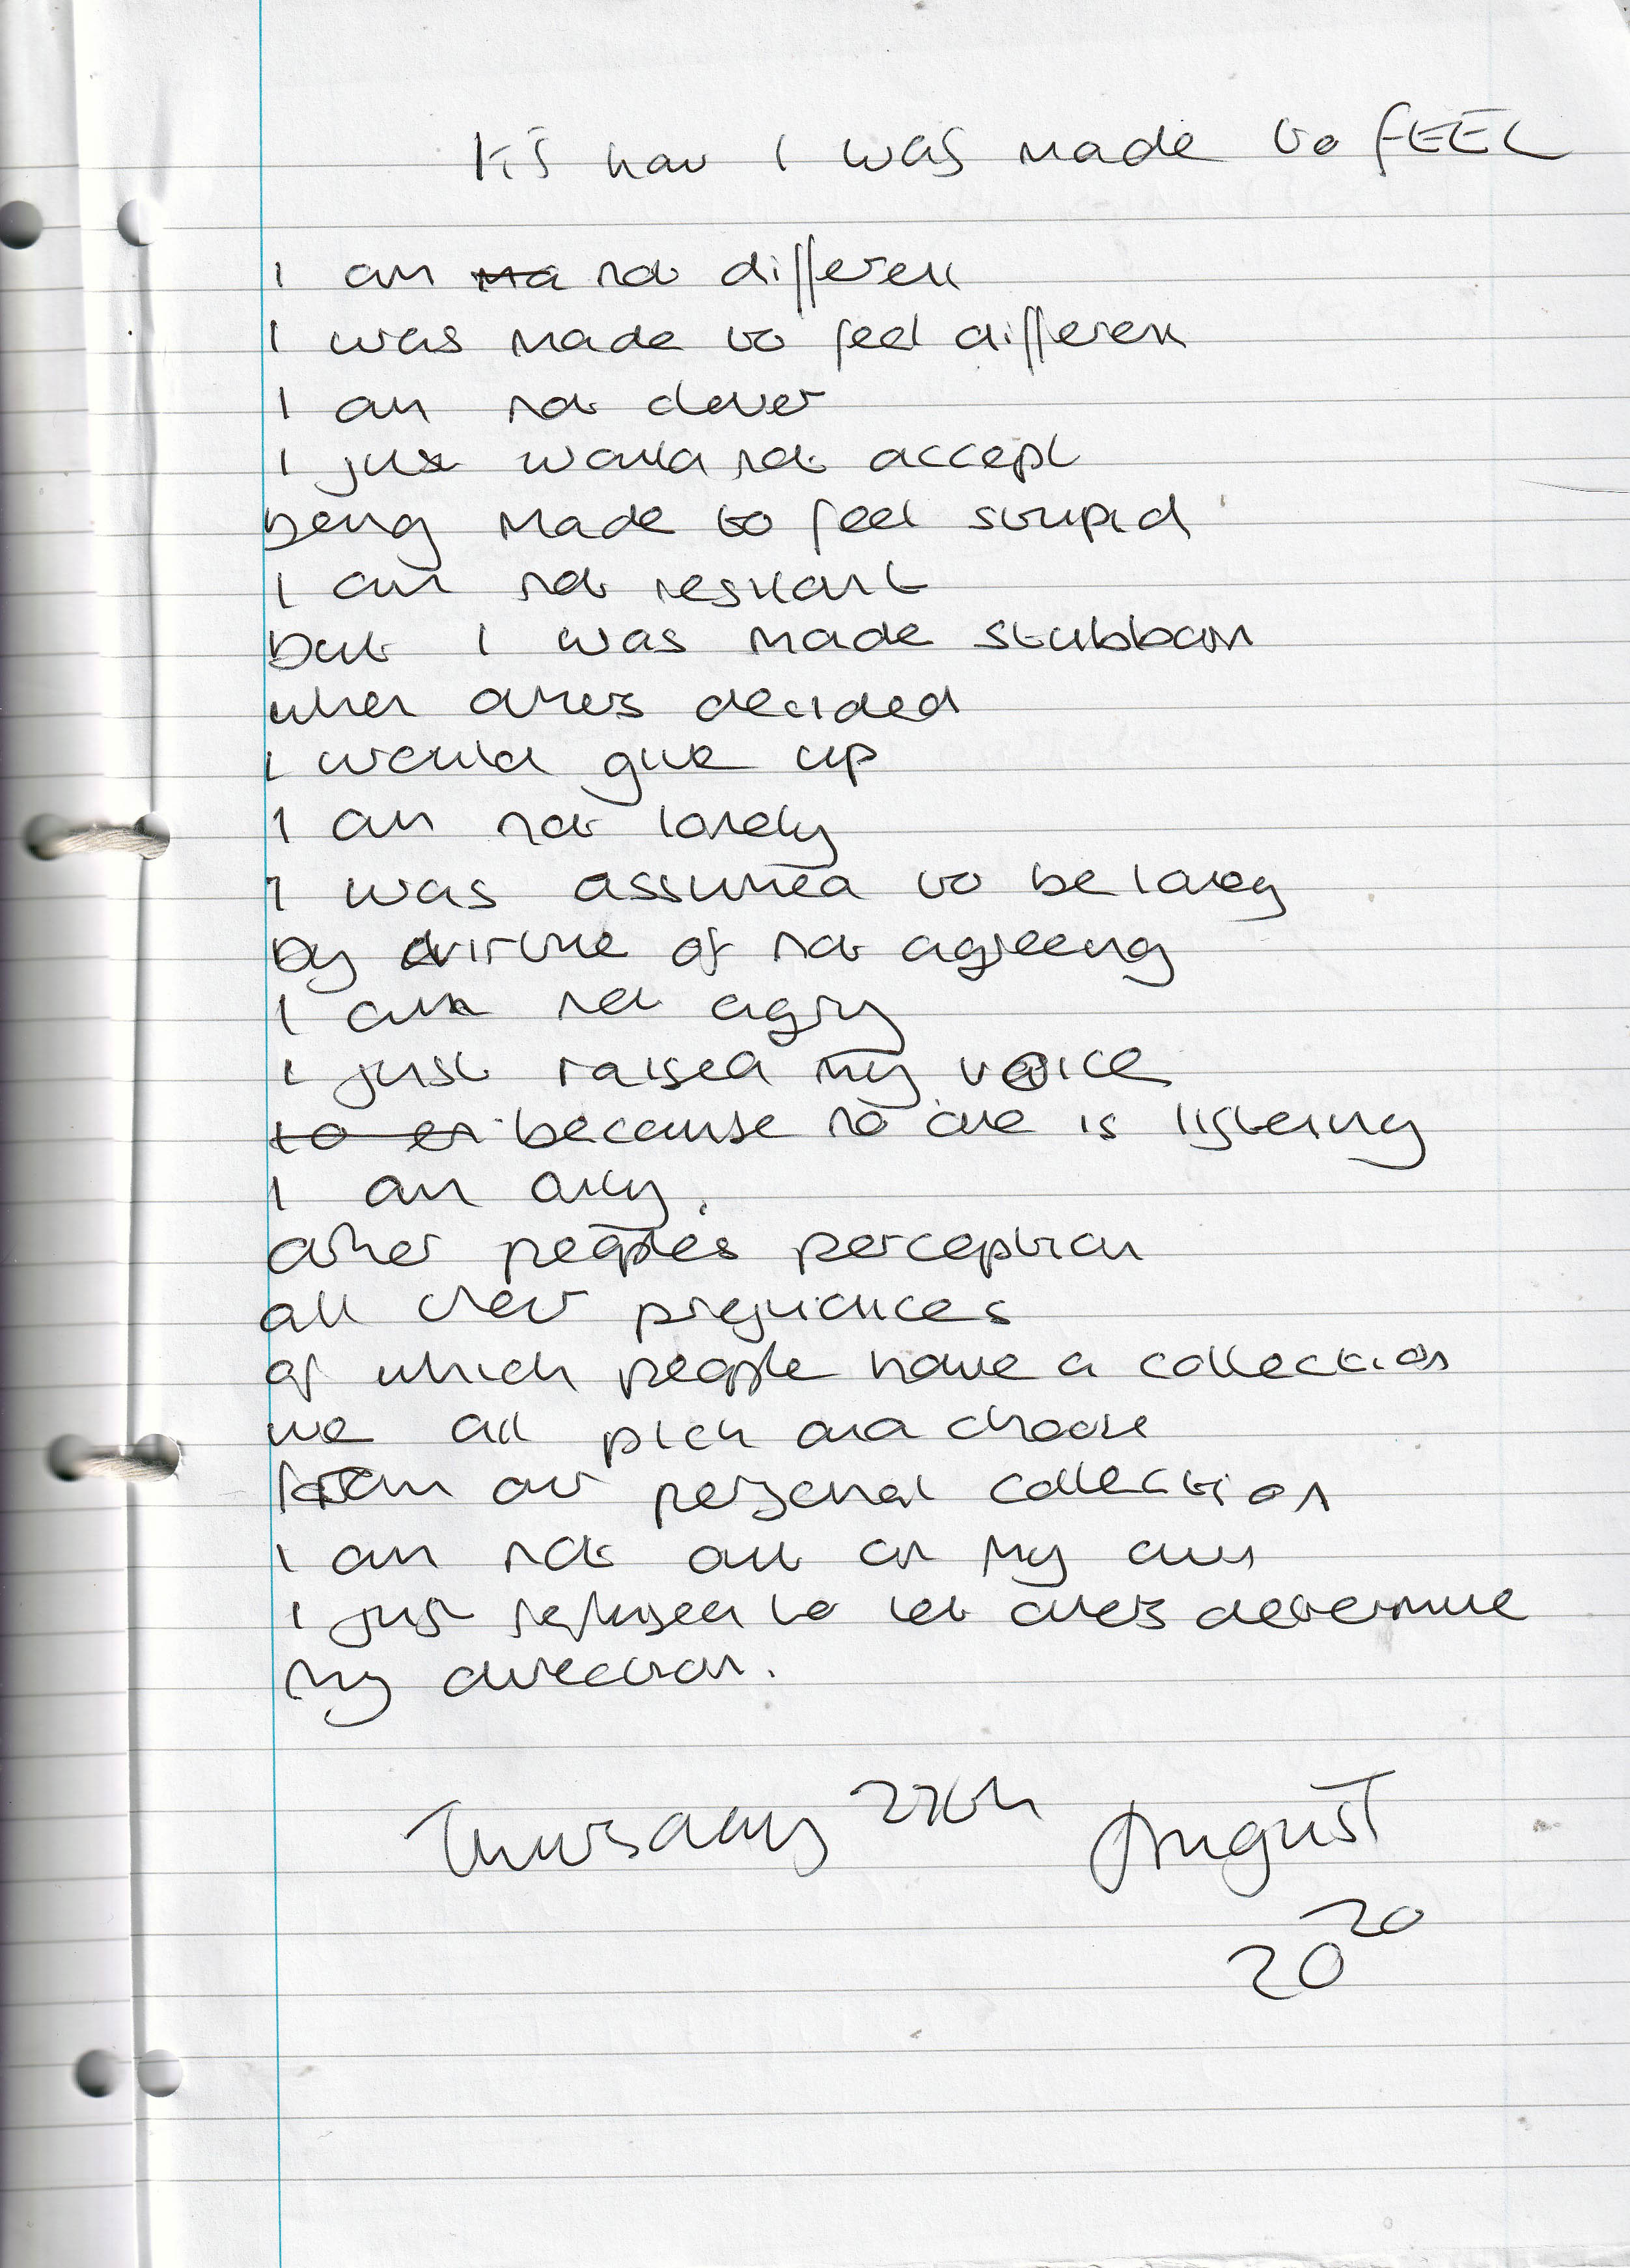 It's how I was made to FEEL
I am not different
I was made to feel different
I am not clever
I just would not accept
being made to feel stupid
I am not
but I was made stubborn
when others decided
I would give up
I am not lonely
I was assumed to be lonely
by virtue of not agreeing
I am not agry
I just raised my voice
because no one is listening
I am only
other peoples perception
all their prejudices
of which people have a collection
we all pick and choose
from our personal collection
I am not out on my own
I just refused to let others determine
my direction.
Thursday 27th August
2020